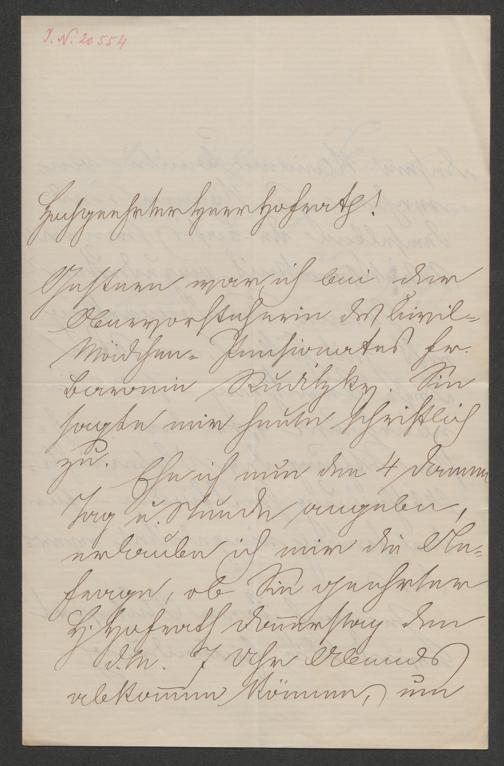 J. N. 20554
Hochgeehrter Herr Hofrath!
Gestern war ich bei der
Obervorsteherin des Civil-
Mädchen-Pensionates Fr.
Baronin Ruditzky. Sie
sagte mir heute schriftlich
zu.
Ehe ich nun den 4 Damen
Tag u. Stunde angeben,
erlauben ich mir die An-
frage, ob Sie geehrter
H. Hofrath Donnerstag den
d. M. 7 Uhr Abends
abkommen können, um